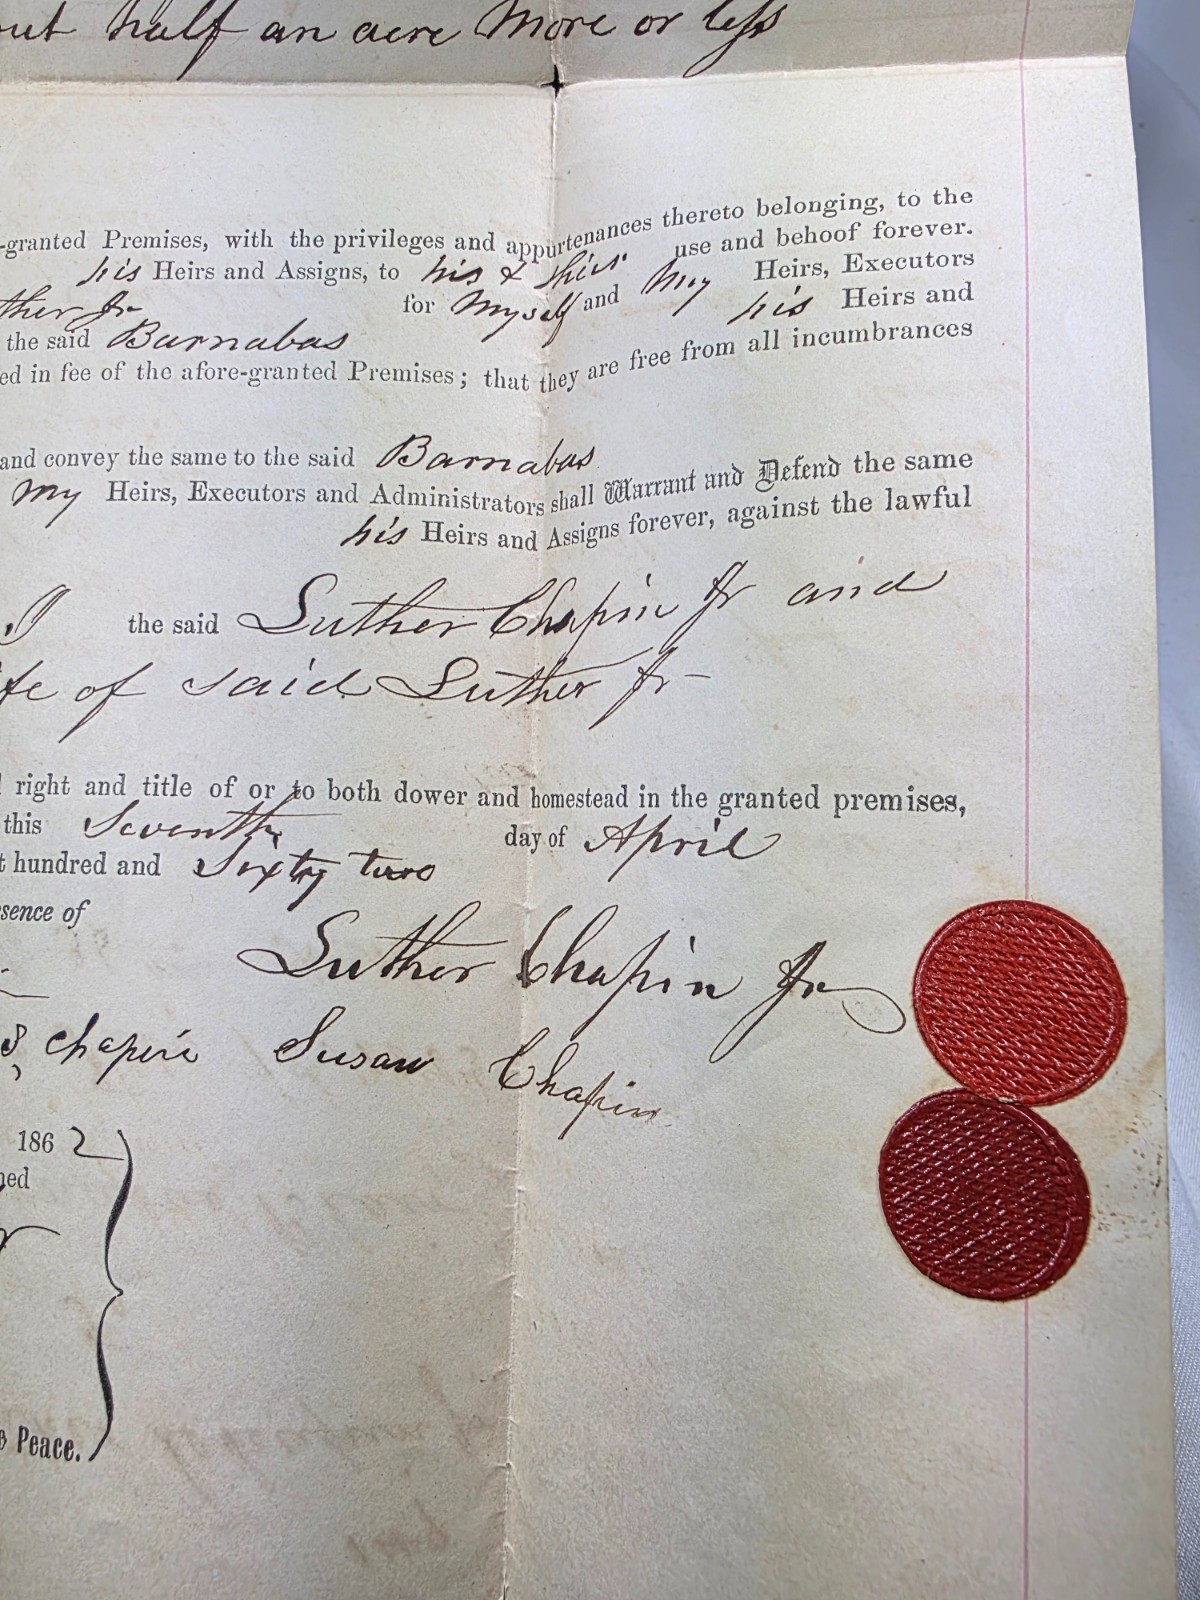 out half an acre more or less
-granted Premises, with the privileges and appurtenances thereto belonging, to the
his Heirs and Assigns, to his & their use and behoof forever.
ther Jr for Myself and My Heirs, Executors
the said Barnabas his Heirs and
ed in fee of the afore-granted Premises; that they are free from all incumbrances
and convey the same to the said Barnabas
My Heirs, Executors and Administrators shall Warrant and Defend the same
his Heirs and Assigns forever, against the lawful
I the said Luther Chapin Jr and
ife of said Luther Jr
right and title of or to both dower and homestead in the granted premises,
this Seventh day of April
t hundred and Sixty two
sence of
Luther Chapin Jr
Chapin Susan Chapin
1862
ned
Peace.